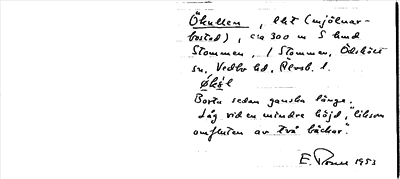 Ökullen, lht (mjölnar-
bostad), ca 300 m S lund
Stommen, 1 Stommen, Ödskölt
sn, Vedbo hd, Älvsb. l.
Borta sedan ganska länge.
Låg vid en mindre höjd, "liksom
omfluten av två bäckar".
E. 1953